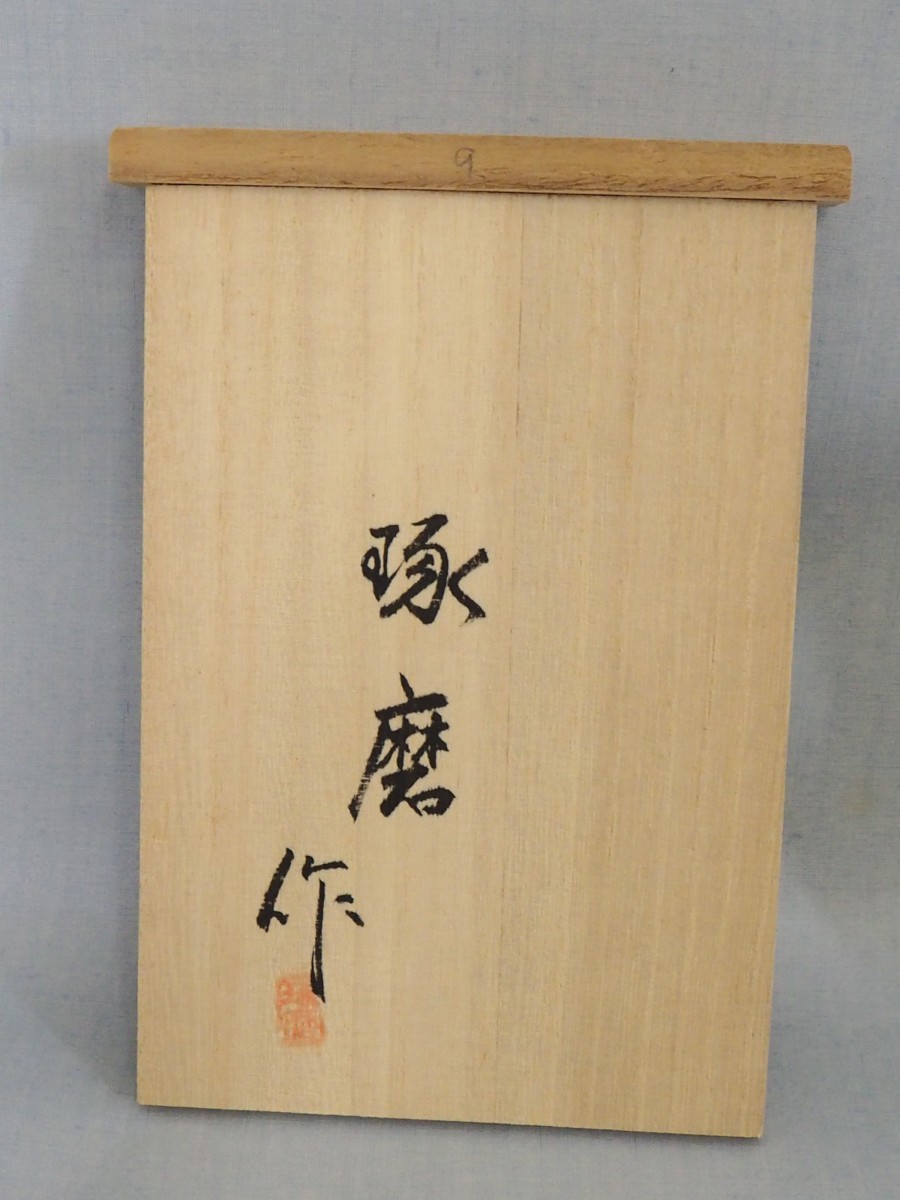 9
琢磨
作